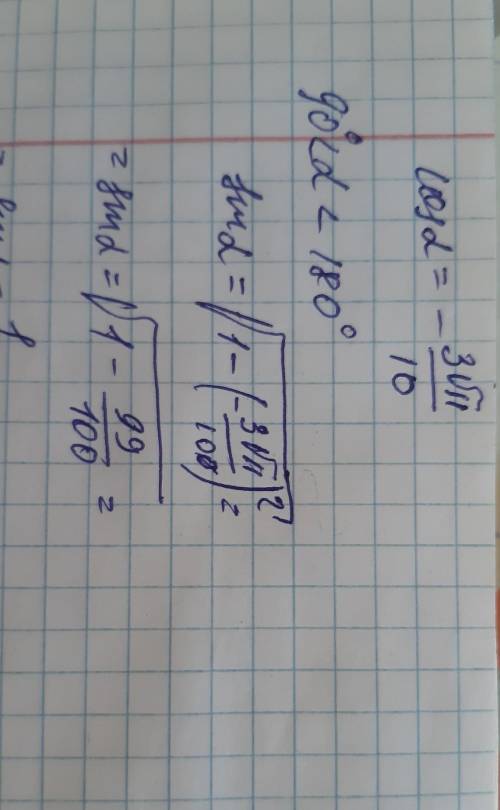 cosα = - 3√11/10
90° < α < 180°
sinα = √1 - (-3√11/10)² =
= sinα = √1 - 99/100 =